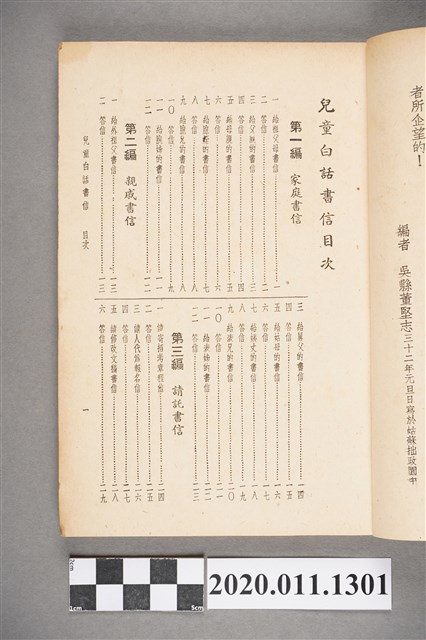 者所企望的！
編者 吳縣董堅志三十二年元旦日寫於姑蘇拙政園中
兒童白話書信目次
第一編 家庭書信
一 給祖父母書信……一
二 答信……二
三 給父親的書信……
四 答信……
五 給母親的書信……
六 答信……
七 給胞 的書信……
八 答信……
九 給胞兄的書信……八
一〇 答信……九
一一 給胞姊的書信……
一二 答信……
第二編 親戚書信
一 給外祖父書信……一三
二 答信……一三
三 給舅父的書信……一四
四 答信……一五
五 給姑母的書信……一六
六 答信……一七
七 給姨丈的書信……一八
八 答信……一九
九 給表兄的書信……二〇
一〇 答信……二一
一一 給表姊的書信……二二
一二 答信……二三
第三編 請託書信
一 請寄招考章程信……一四
二 答信……一五
三 請人代 報名信……一六
四 答信……一七
五 請修改文稿書信……一八
六 答信……一九
兒童白話書信 目次
一
2cm
1cm
5cm
2020.011.1301